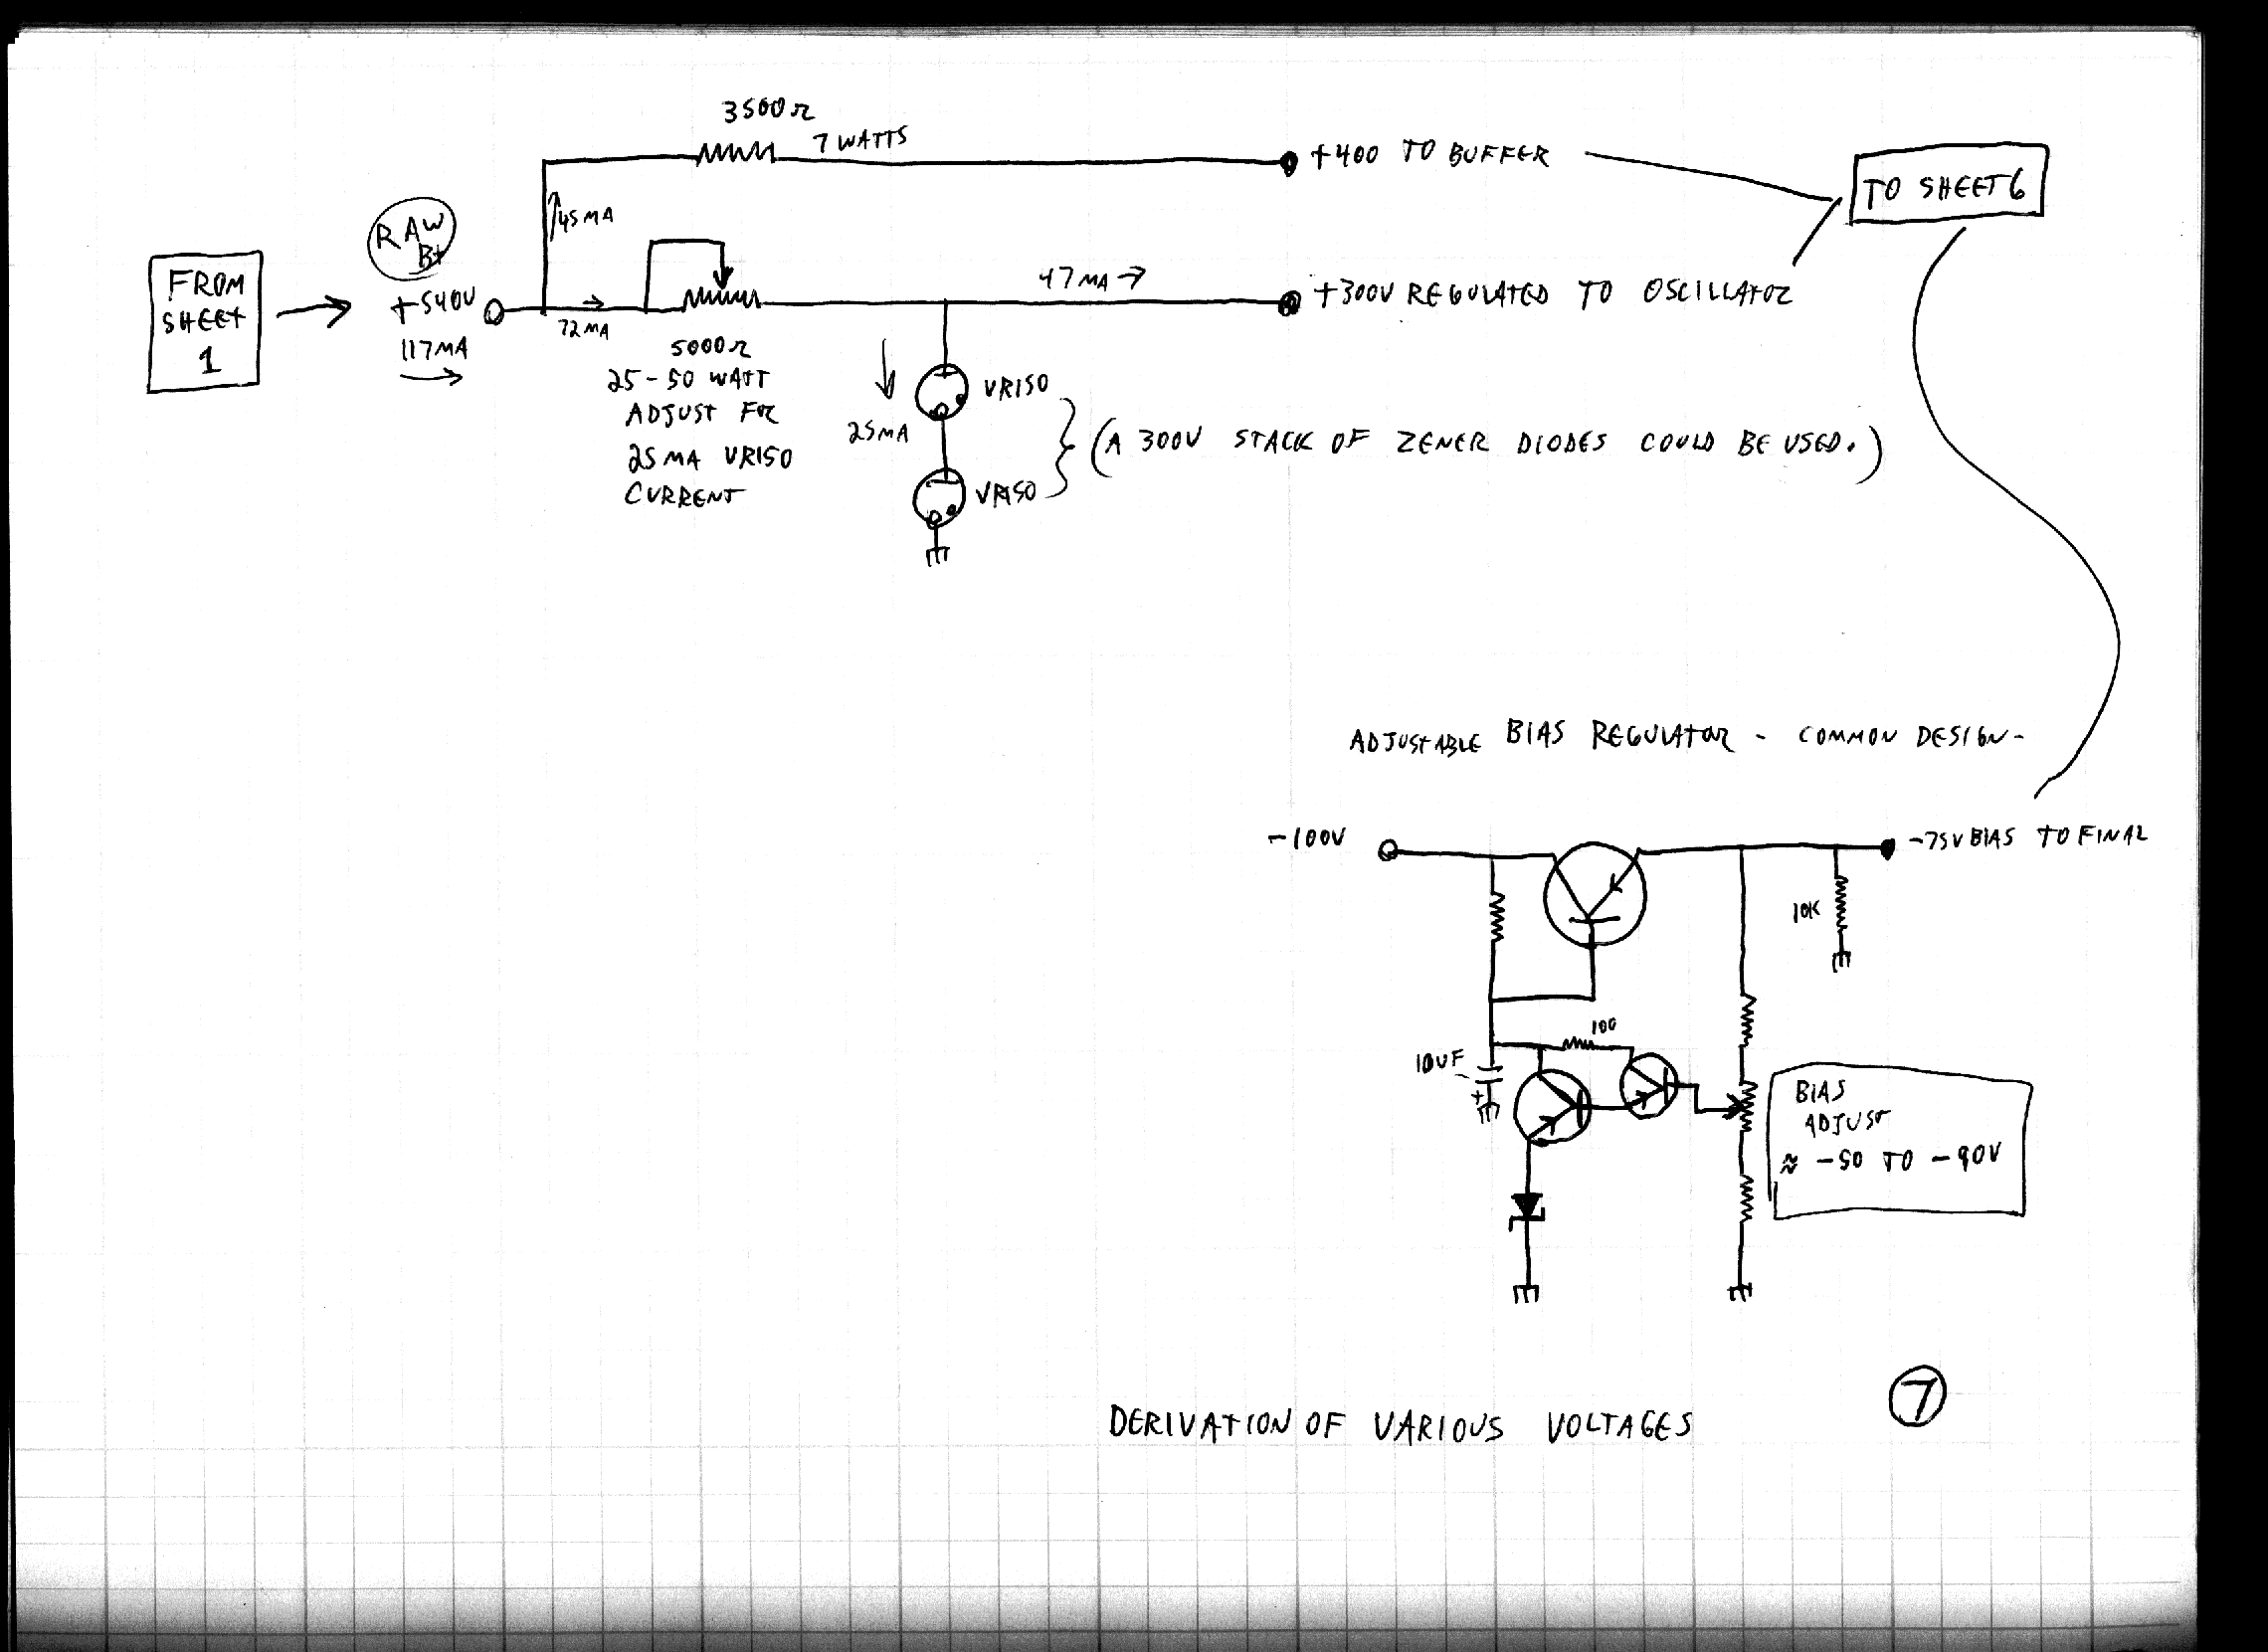 3500Ω
7 WATTS
+400 TO BUFFER
TO SHEET 6
45MA
RAW
B+
FROM
SHEET
1
+540V
117MA
72MA
47MA
+300V REGULATED TO OSCILLATOR
5000Ω
25-50 WATT
ADJUST FOR
25MA VR150
CURRENT
25MA
VR150
VR150
(A 300V STACK OF ZENER DIODES COULD BE USED.)
ADJUSTABLE BIAS REGULATOR - COMMON DESIGN-
-100V
-75V BIAS TO FINAL
10K
100
10UF
-
+
BIAS
ADJUST
≈ -50 TO -90V
DERIVATION OF VARIOUS VOLTAGES
7